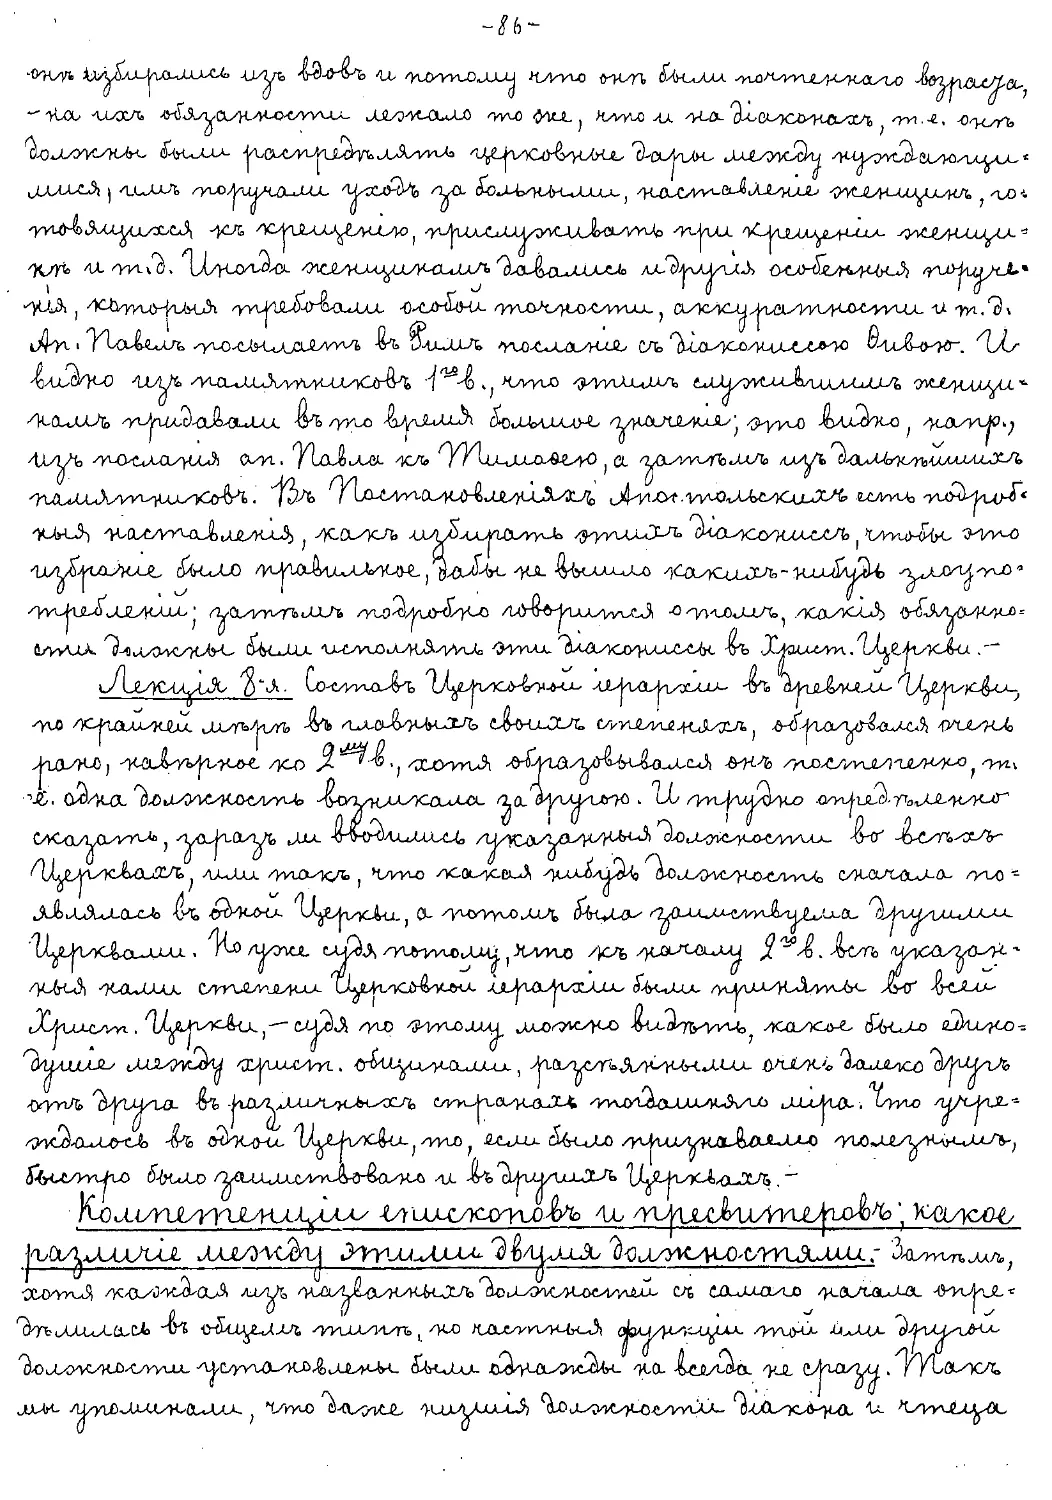 -86-
онѣ избирались изъ вдовъ и потому что онѣ были почтеннаго возраста,
- на ихъ обязанности лежало то же, что и на діаконахъ, т.е. онѣ
должны были распредѣлять церковные дары между нуждающи=
мися; имъ поручали уходъ за больными, наставленіе женщинъ, го=
товящихся къ крещенію, прислуживать при крещеніи женщи=
нѣ и т.д. Иногда женщинамъ давались и другія особенныя поруче=
нія, которыя требовали особой точности, аккуратности и т.д.
Ап. Павелъ посылаетъ въ Римъ посланіе съ діакониссою Ѳивою. И
видно изъ памятниковъ 1го в., что этимъ служившимъ женщи=
намъ придавали въ то время большое значеніе; это видно, напр.,
изъ посланія ап. Павла къ Тимоѳею, а затѣмъ изъ дальнѣйшихъ
памятниковъ. Въ Постановленіяхъ Апостольскихъ есть подроб=
ныя наставленія, какъ избирать этихъ діакониссъ, чтобы это
избраніе было правильное, дабы не вышло какихъ-нибудь злоупо=
требленій; затѣмъ подробно говорится о томъ, какія обязанно=
сти должны были исполнять эти діакониссы въ Христ. Церкви.-
Лекція 8-я. Составъ Церковной іерархіи въ древней Церкви,
по крайней мѣрѣ въ главныхъ своихъ степеняхъ, образовался очень
рано, навѣрное ко 2му в., хотя образовывался онъ постепенно, т.
е. одна должность возникала за другою. И трудно опредѣленно
сказать, заразъ ли вводились указанныя должности во всѣхъ
Церквахъ, или такъ, что какая нибудь должность сначала по=
являлась въ одной Церкви, а потомъ была заимствуема другими
Церквами. Но уже судя потому, что къ началу 2го в. всѣ указан=
ныя нами степени Церковной іерархіи были приняты во всей
Христ. Церкви,- судя по этому можно видѣть, какое было едино=
душіе между христ. общинами, разсѣянными очень далеко другъ
отъ друга въ различныхъ странахъ тогдашняго міра. Что учре=
ждалось въ одной Церкви, то, если было признаваемо полезнымъ,
быстро было заимствовано и въ другихъ Церквахъ.-
Компетенціи епископовъ и пресвитеровъ; какое
различіе между этими двумя должностями.- Затѣмъ,
хотя каждая изъ названныхъ должностей съ самаго начала опре=
дѣлилась въ общемъ типѣ, но частныя функціи той или другой
должности установлены были однажды на всегда не сразу. Такъ
мы упоминали, что даже низшія должности діакона и чтеца